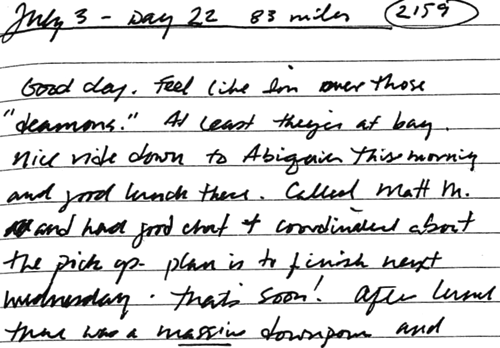 July 3 - Day 22 83 miles 2159
Good day. Feel like I'm over those
"deamons." At least they're at bay.
Nice ride down to Abigail this morning
and good lunch there. Called Matt M.
and had good chat + coordinated about
the pick up - plan is to finish next
Wednesday. That's soon! After lunch
there was a massive downpour and